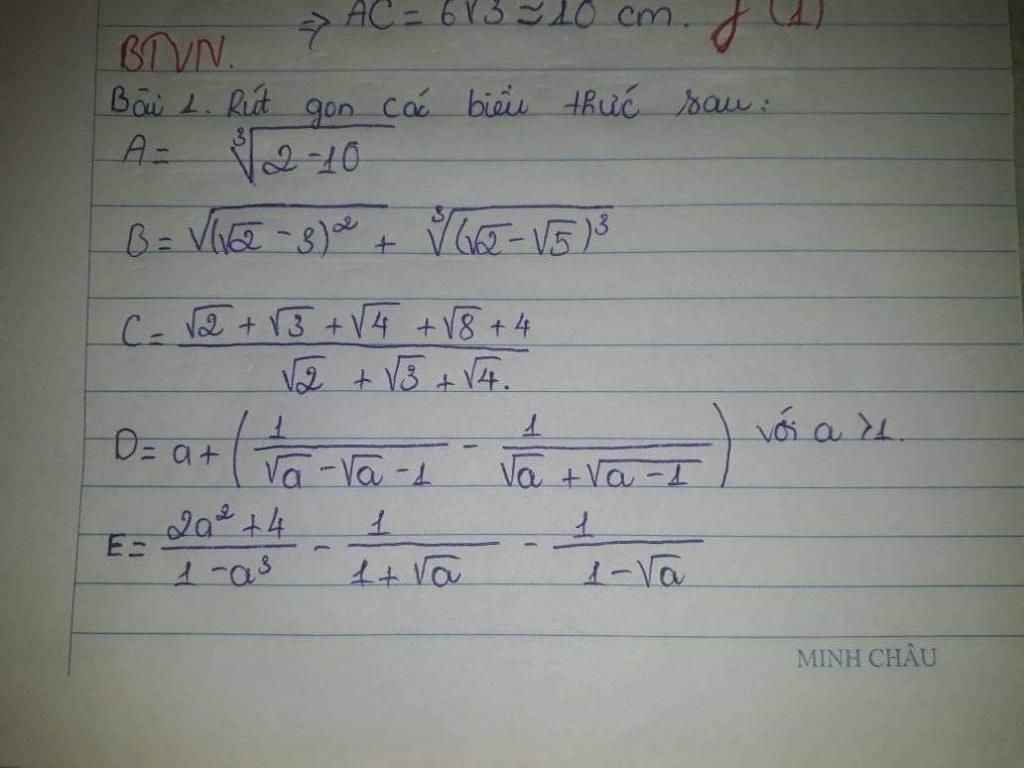 ⇒ AC = 6√3 ≈ 10 cm. (1)
BTVN.
Bài 1. Rút gọn các biểu thức sau:
A = ∛(2-10)
B = √((√2 - 3)²) + ∛((√2 - √5)³)
C = (√2 + √3 + √4 + √8 + 4)/(√2 + √3 + √4).
D = a + (1/(√a - √a - 1) - 1/(√a + √(a - 1))) với a >1.
E = (2a² + 4)/(1 - a³) - 1/(1 + √a) - 1/(1 - √a)
MINH CHÂU